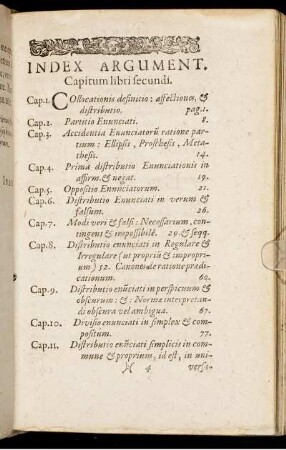 INDEX ARGUMENT.
Capitum libri secundi.
Cap.1. COllocationis definitio: affectiones, &
distributio. pag.1.
Cap.2. Partitio Enunciati. 8.
Cap.3. Accidentia Enunciatorũ ratione par-
tium: Ellipsis, Prosthesis, Meta-
thesis. 14.
Cap.4. Prima distributio Enunciationis in
affirm. & negat. 19.
Cap.5. Oppositio Enunciatorum. 21.
Cap.6. Distributio Enunciati in verum &
falsum. 26.
Cap.7. Modi veri & falsi: Necessarium, con-
tingens & impossibile. 29. & seqq.
Cap.8. Distributio enunciati in Regulare &
Irregulare (ut propriũ & impropri-
um) 52. Canones de ratione prædi-
cationum. 60.
Cap.9. Distributio enũciati in perspicuum &
obscurum: &: Normæ interpretan-
di obscura vel ambigua. 67.
Cap.10. Divisio enunciati in simplex & com-
positum. 77.
Cap.11. Distributio enũciati simplicis in com-
mune & proprium, id est, in uni-
4 versa-